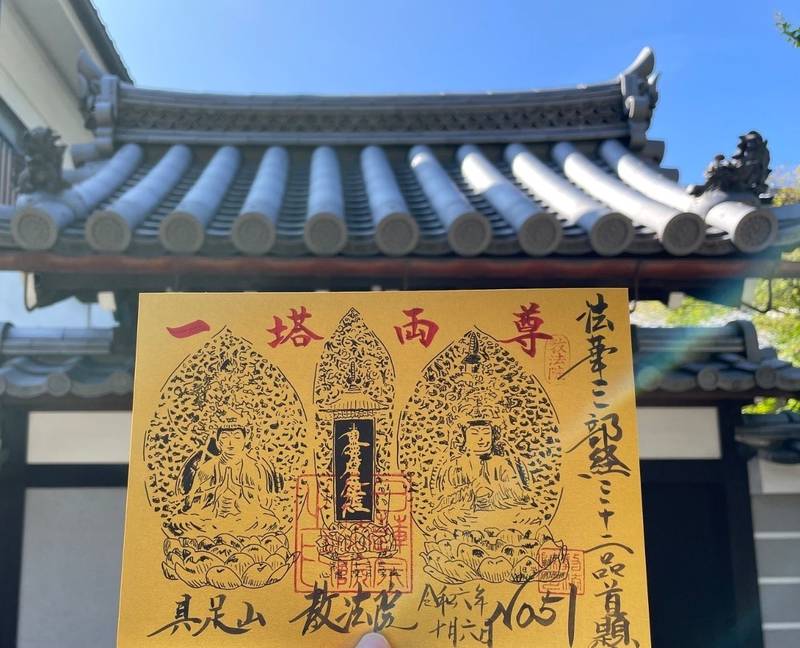 一塔両尊
法華三部経三十二品首題
具足山
教法院
令和六年
十月六日
No51